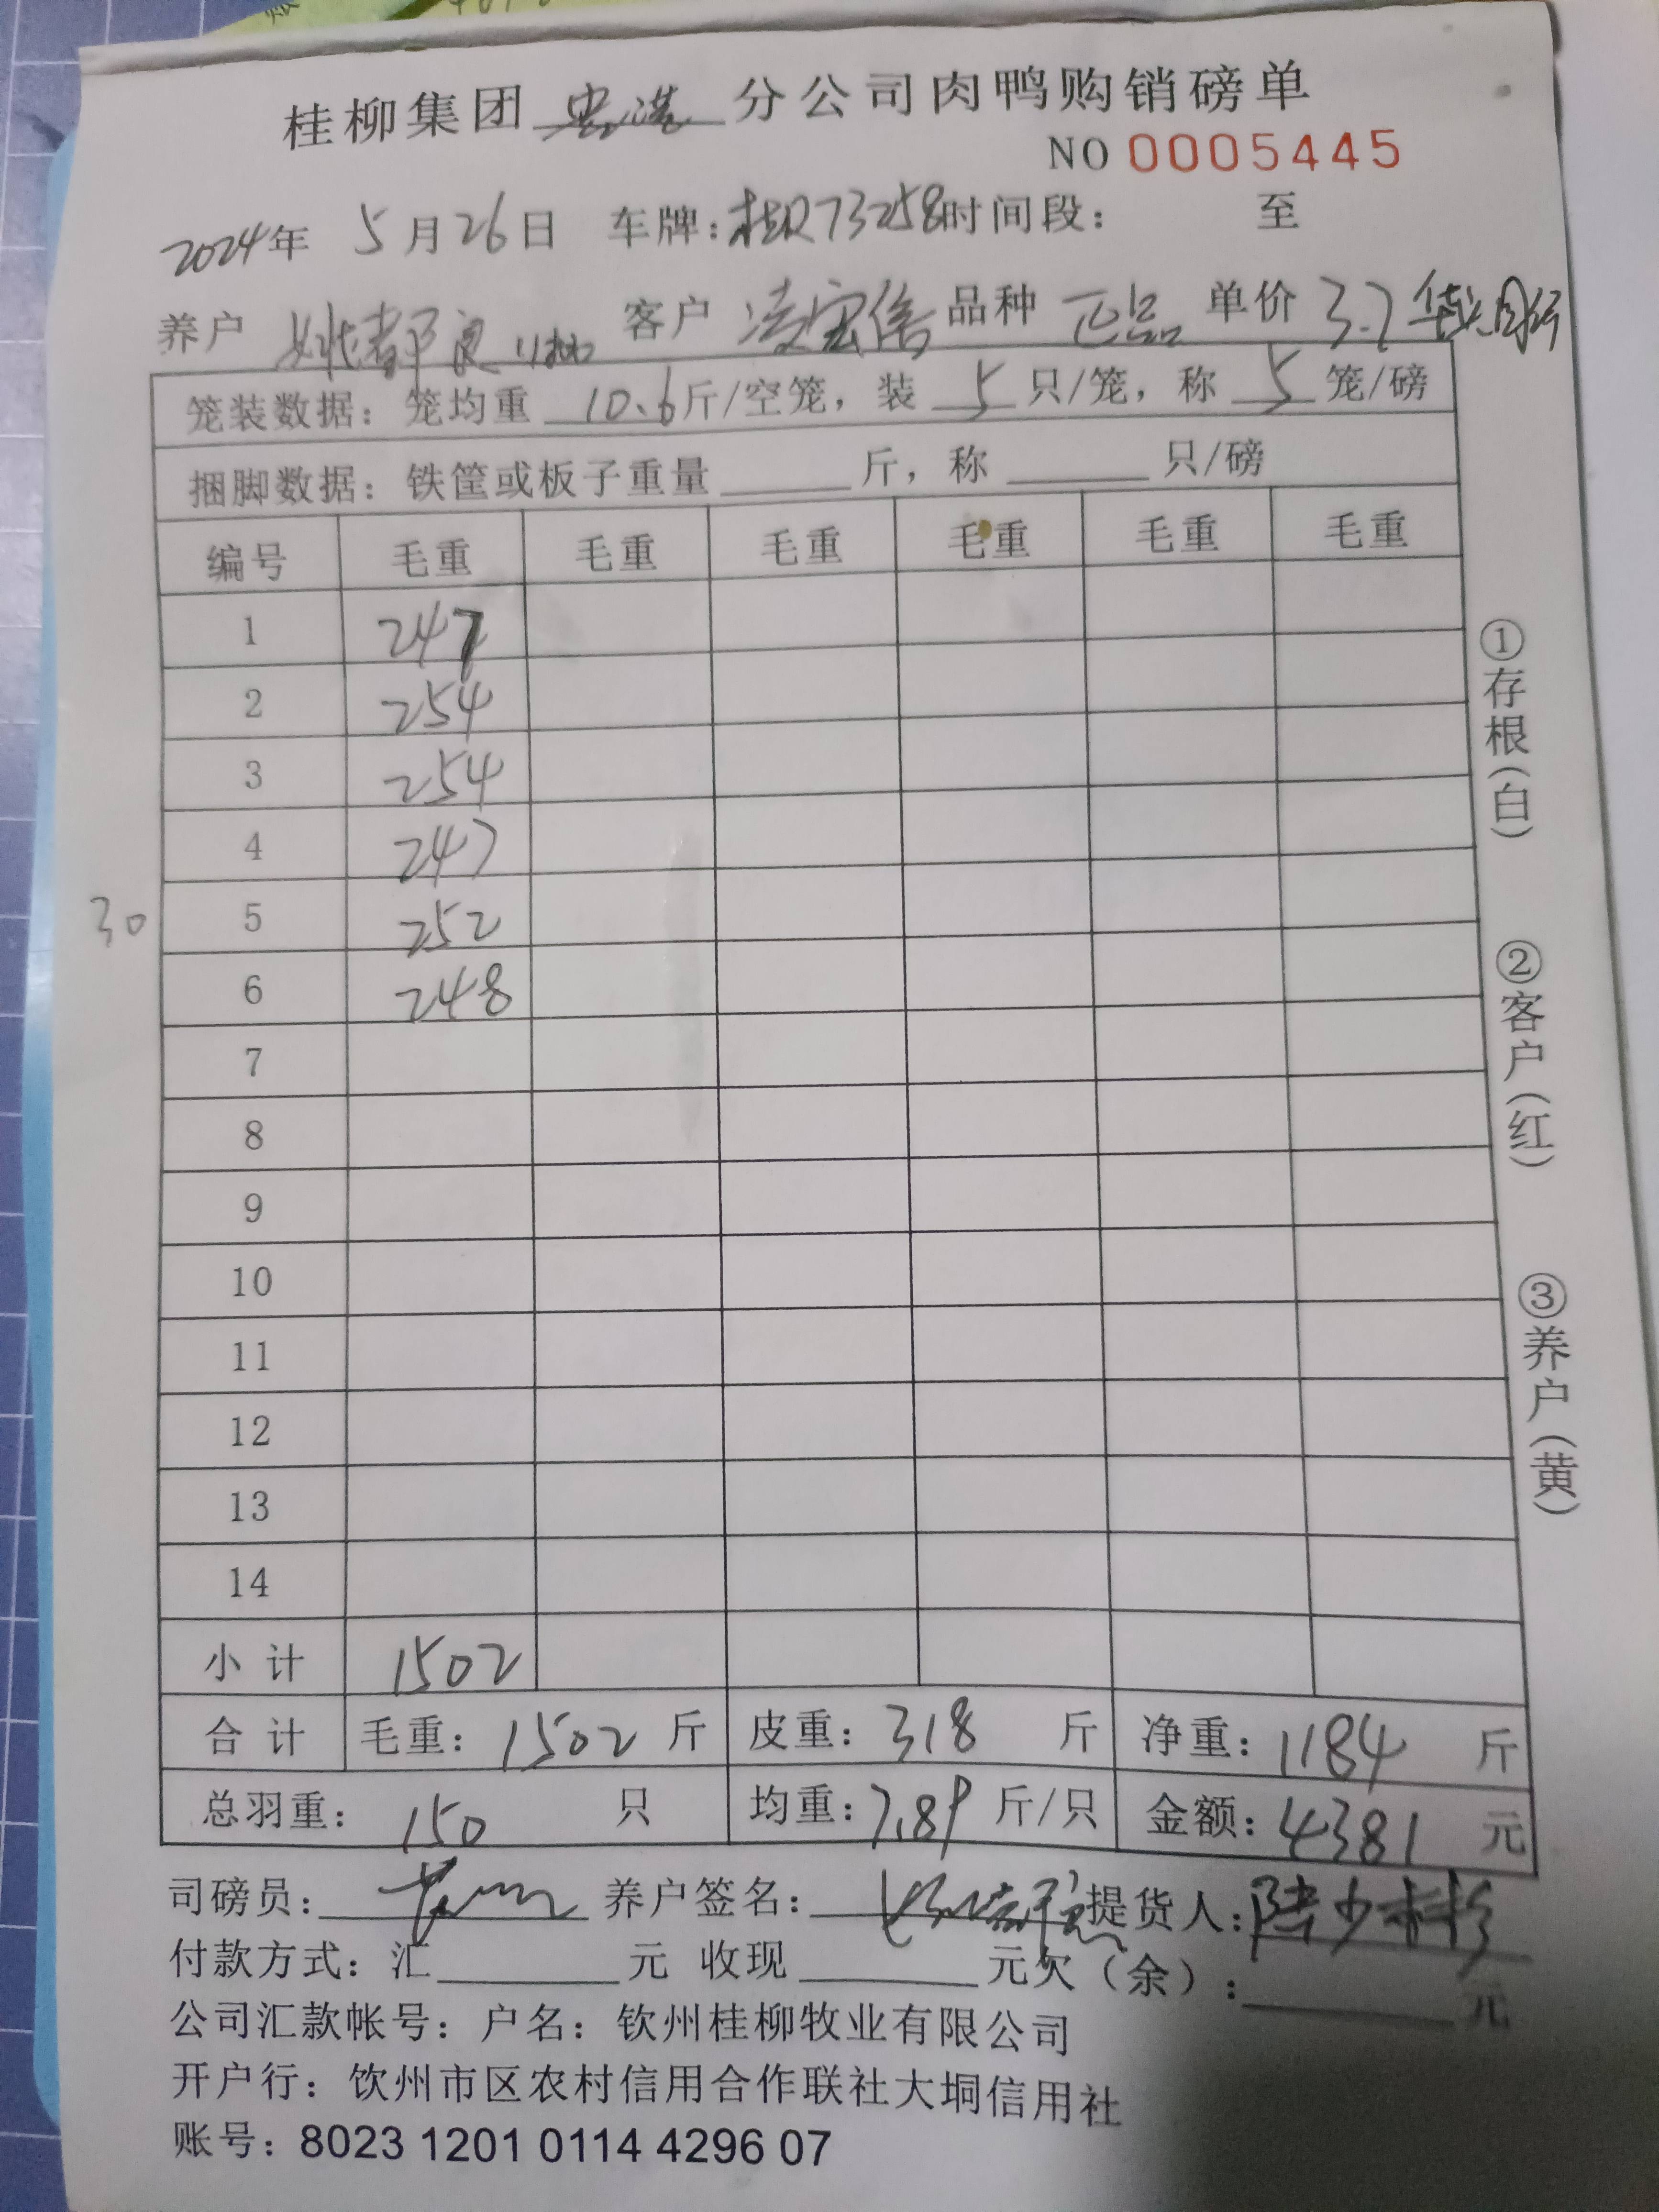 桂柳集团 贵港 分公司肉鸭购销磅单
NO 0005445
2024年 5月26日 车牌:桂R73258时间段: 至
养户 姚都良 客户 凌宏信 品种 正品 单价 3.7
笼装数据: 笼均重 10.6斤/空笼, 装 5 只/笼, 称 5 笼/磅
捆脚数据: 铁筐或板子重量 斤, 称 只/磅
编号 毛重 毛重 毛重 毛重 毛重 毛重
1 247
2 254
3 254
4 247
30 5 252
6 248
7
8
9
10
11
12
13
14
小计 1502
合计 毛重: 1502 斤 皮重: 318 斤 净重: 1184 斤
总羽重: 150 只 均重: 7.89 斤/只 金额: 4381 元
司磅员: 养户签名: 提货人:
付款方式: 汇 元 收现 元欠(余): 元
公司汇款帐号: 户名: 钦州桂柳牧业有限公司
开户行: 钦州市区农村信用合作联社大垌信用社
账号: 8023 1201 0114 4296 07
①存根(白)
②客户(红)
③养户(黄)